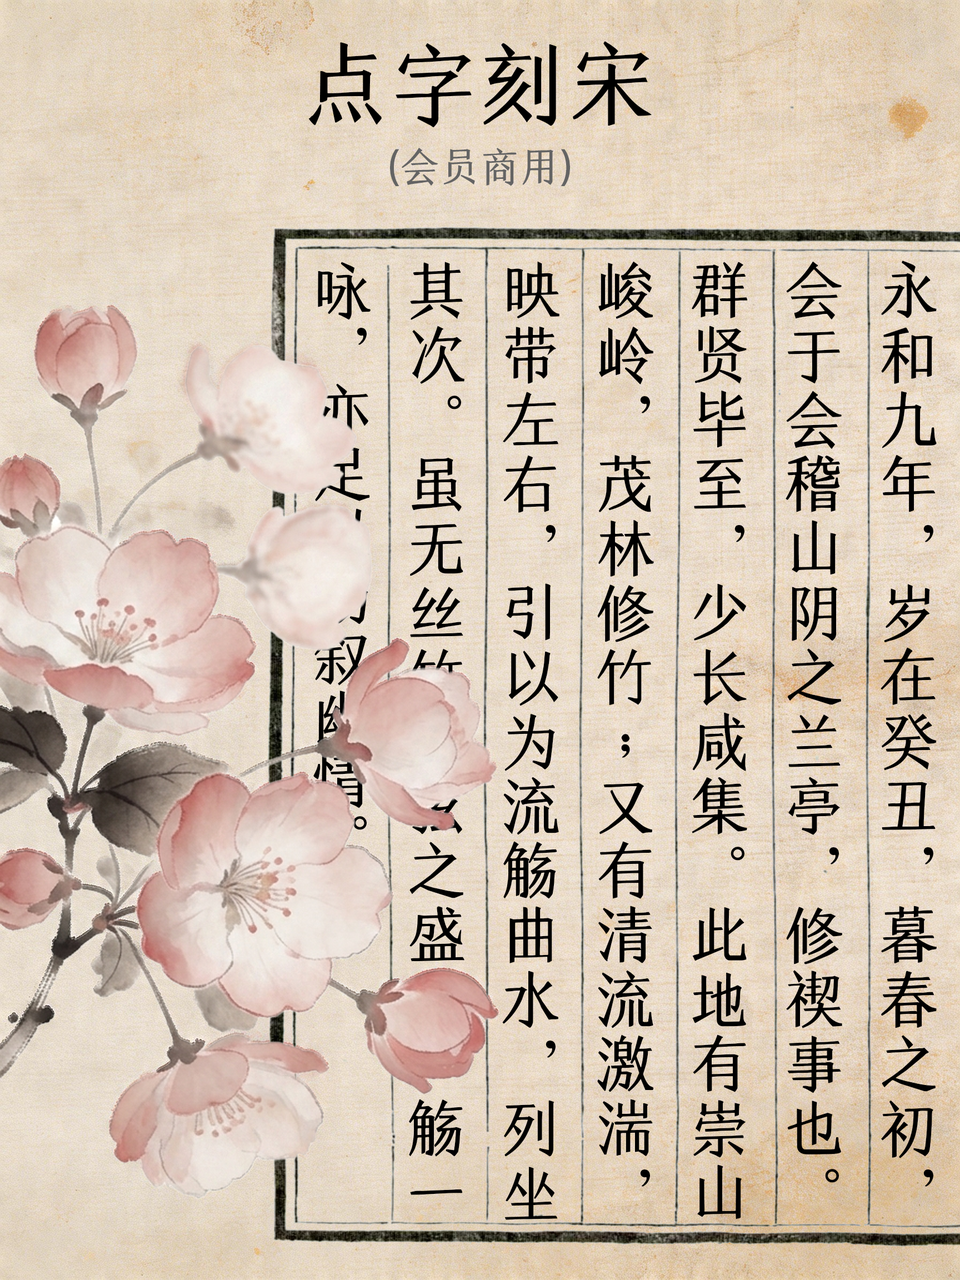 点字刻宋
(会员商用)
永和九年，岁在癸丑，暮春之初，
会于会稽山阴之兰亭，修禊事也。
群贤毕至，少长咸集。此地有崇山
峻岭，茂林修竹；又有清流激湍，
映带左右，引以为流觞曲水，列坐
其次。虽无丝竹之盛 觞一
咏，亦足叙幽情。